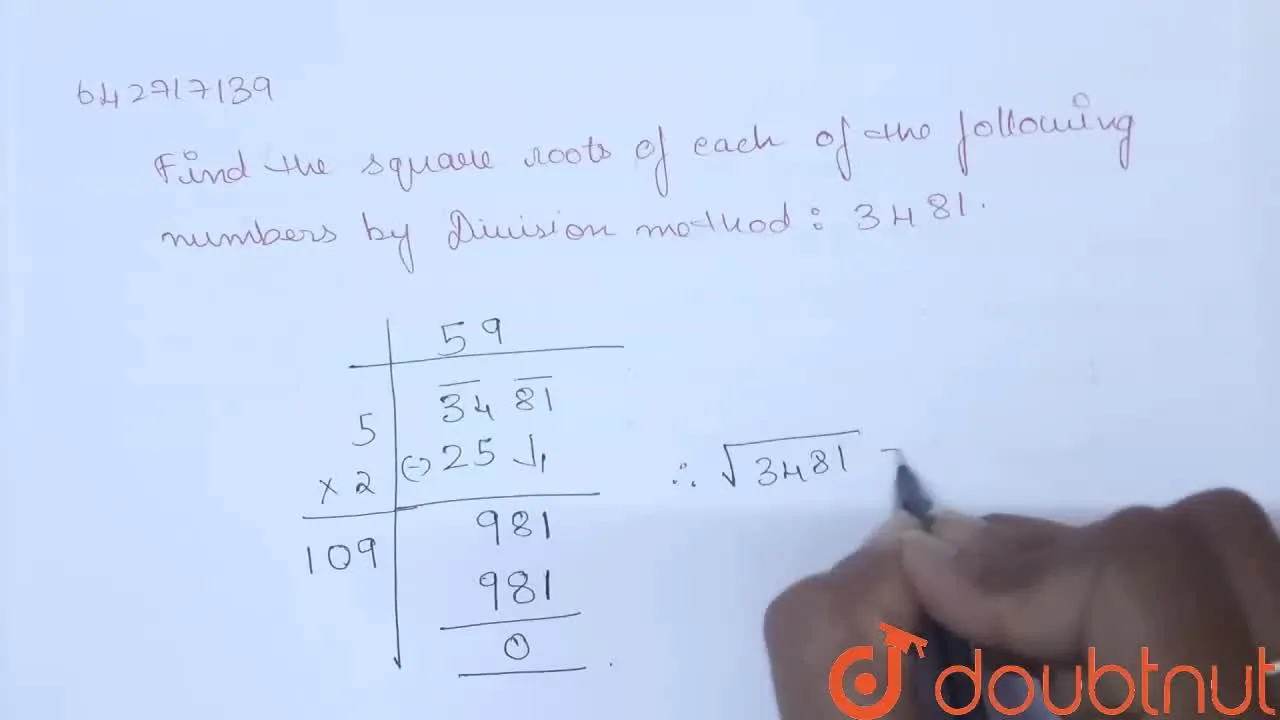 642717139
Find the square roots of each of the following
numbers by Division method : 3481.
59
5 3481
×2 (-) 25
109 981
981
0
∴ √3481 =
doubtnut